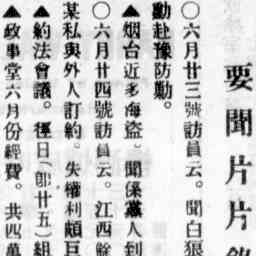 要聞片片
○六月廿三號訪員云。聞白狼
勦赴豫防勦。
▲烟台近多海盜。聞係黨人到
○六月廿四號訪員云。江西
某私與外人訂約。失權利頗巨
▲約法會議。擇日（卽廿五）組
▲政事堂六月份經費。共四萬